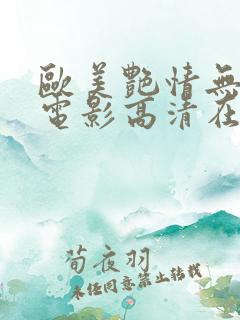 歐美艷情無
電影高清在
荀夜羽
未经同意禁止转载